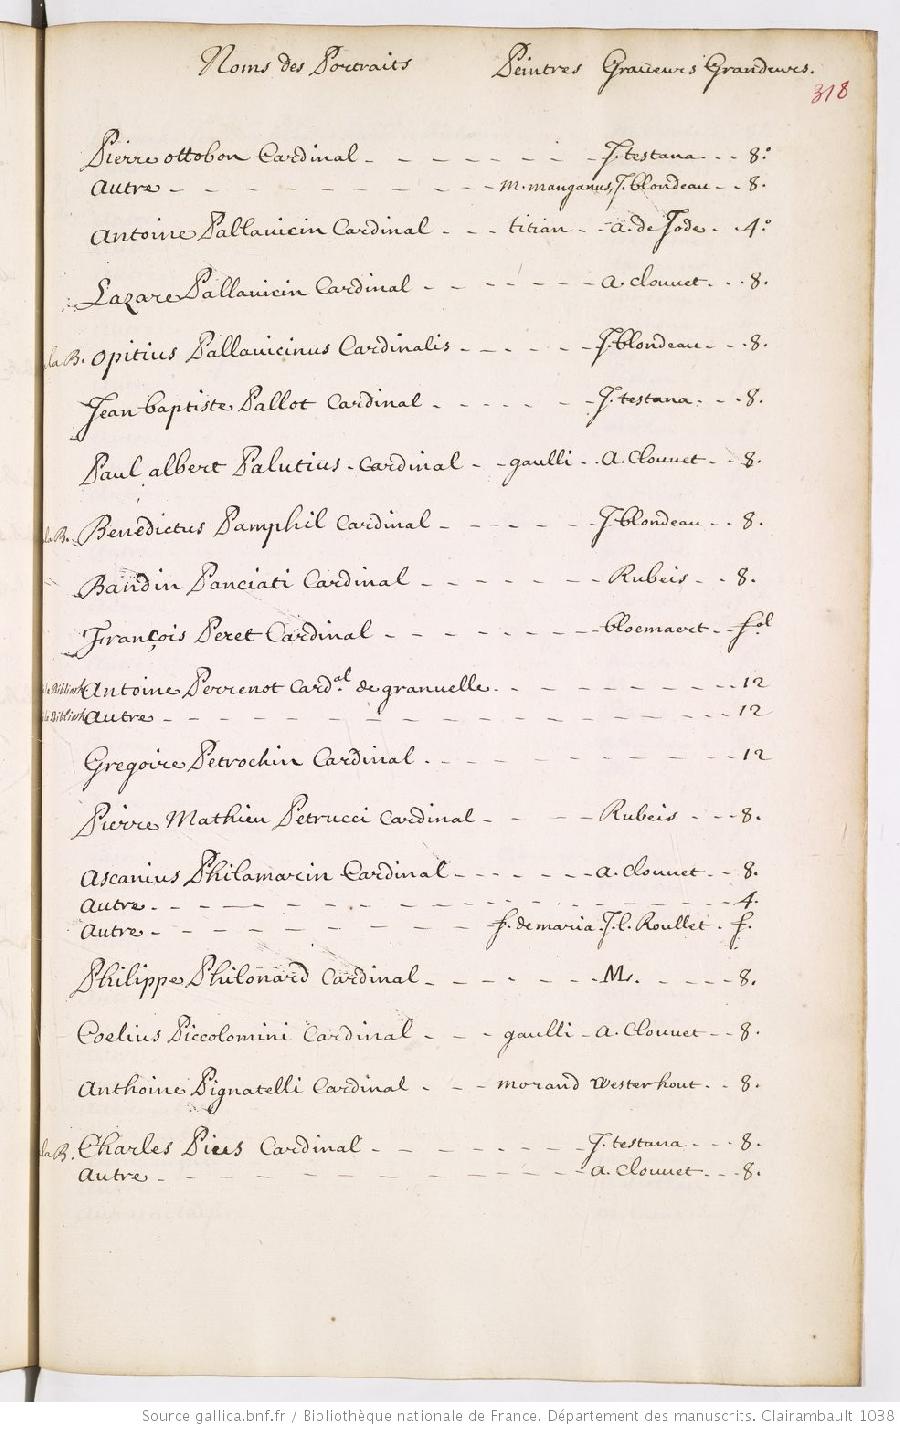 Noms des Portraits Peintres Graueurs Grandeurs.
318
Pierre ottobon Cardinal - - - - - - - J. testana - - 8.º
autre - - - - - - - - - m. manganus, J. blondeau - - 8.
antoine Pallauicin Cardinal - - - titian - - a. de Jode - 4.º
Lazare Pallauicin Cardinal - - - - - - - a. clouuet - - - 8.
la B. opitius Pallauicinus Cardinalis - - - - - J. blondeau - - - 8.
Jean baptiste Pallot Cardinal - - - - - - J. testana - - - 8.
Paul albert Palutius - Cardinal - - gaulli - - A. Clouuet - - 8.
la B. Benedictus Pamphil Cardinal - - - - - J. blondeau - - 8.
Bandin Panciati Cardinal - - - - - - - Rubeis - - 8.
François Peret Cardinal - - - - - - - bloemaert - fol
la Biblioth antoine Perrenot Card.al de granuelle - - - - - - - - - 12
la Biblioth autre - - - - - - - - - - - - - - - - 12
Gregoire Petrochin Cardinal - - - - - - - - - - 12
Pierre Mathieu Petrucci Cardinal - - - - Rubeis - - - 8.
ascanius Philamarin Cardinal - - - - - - a. Clouuet - - 8.
autre - - - - - - - - - - - - - - - - 4.
autre - - - - - - - - - f. de maria. J. l. Roullet - f.
Philippe Philonard Cardinal - - - - - - Ms. - - - - 8.
Coelius Piccolomini Cardinal - - - gaulli - a. Clouuet - - 8.
anthoine Pignatelli Cardinal - - - morand Westerhout - - 8.
la B. Charles Pieus Cardinal - - - - - - - J. testana - - - 8.
autre - - - - - - - - - - - a. Clouuet - - - 8.
Source gallica.bnf.fr / Bibliothèque nationale de France. Département des manuscrits. Clairambault 1038